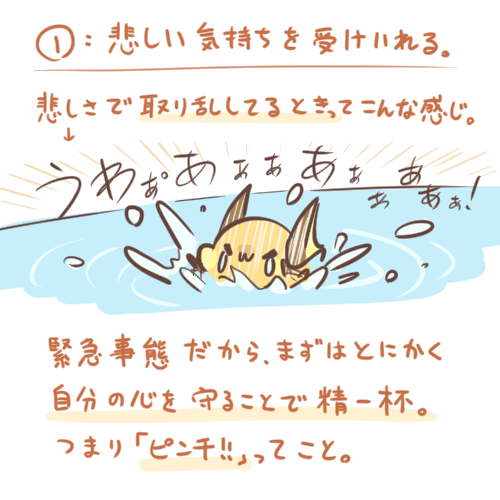 ①:悲しい気持ちを受けいれる。
悲しさで取り乱ししてるときってこんな感じ。
うわぁぁあぁぁあぁぁあぁぁ!
緊急事態だから、まずはとにかく
自分の心を守ることで精一杯。
つまり「ピンチ!!」ってこと。